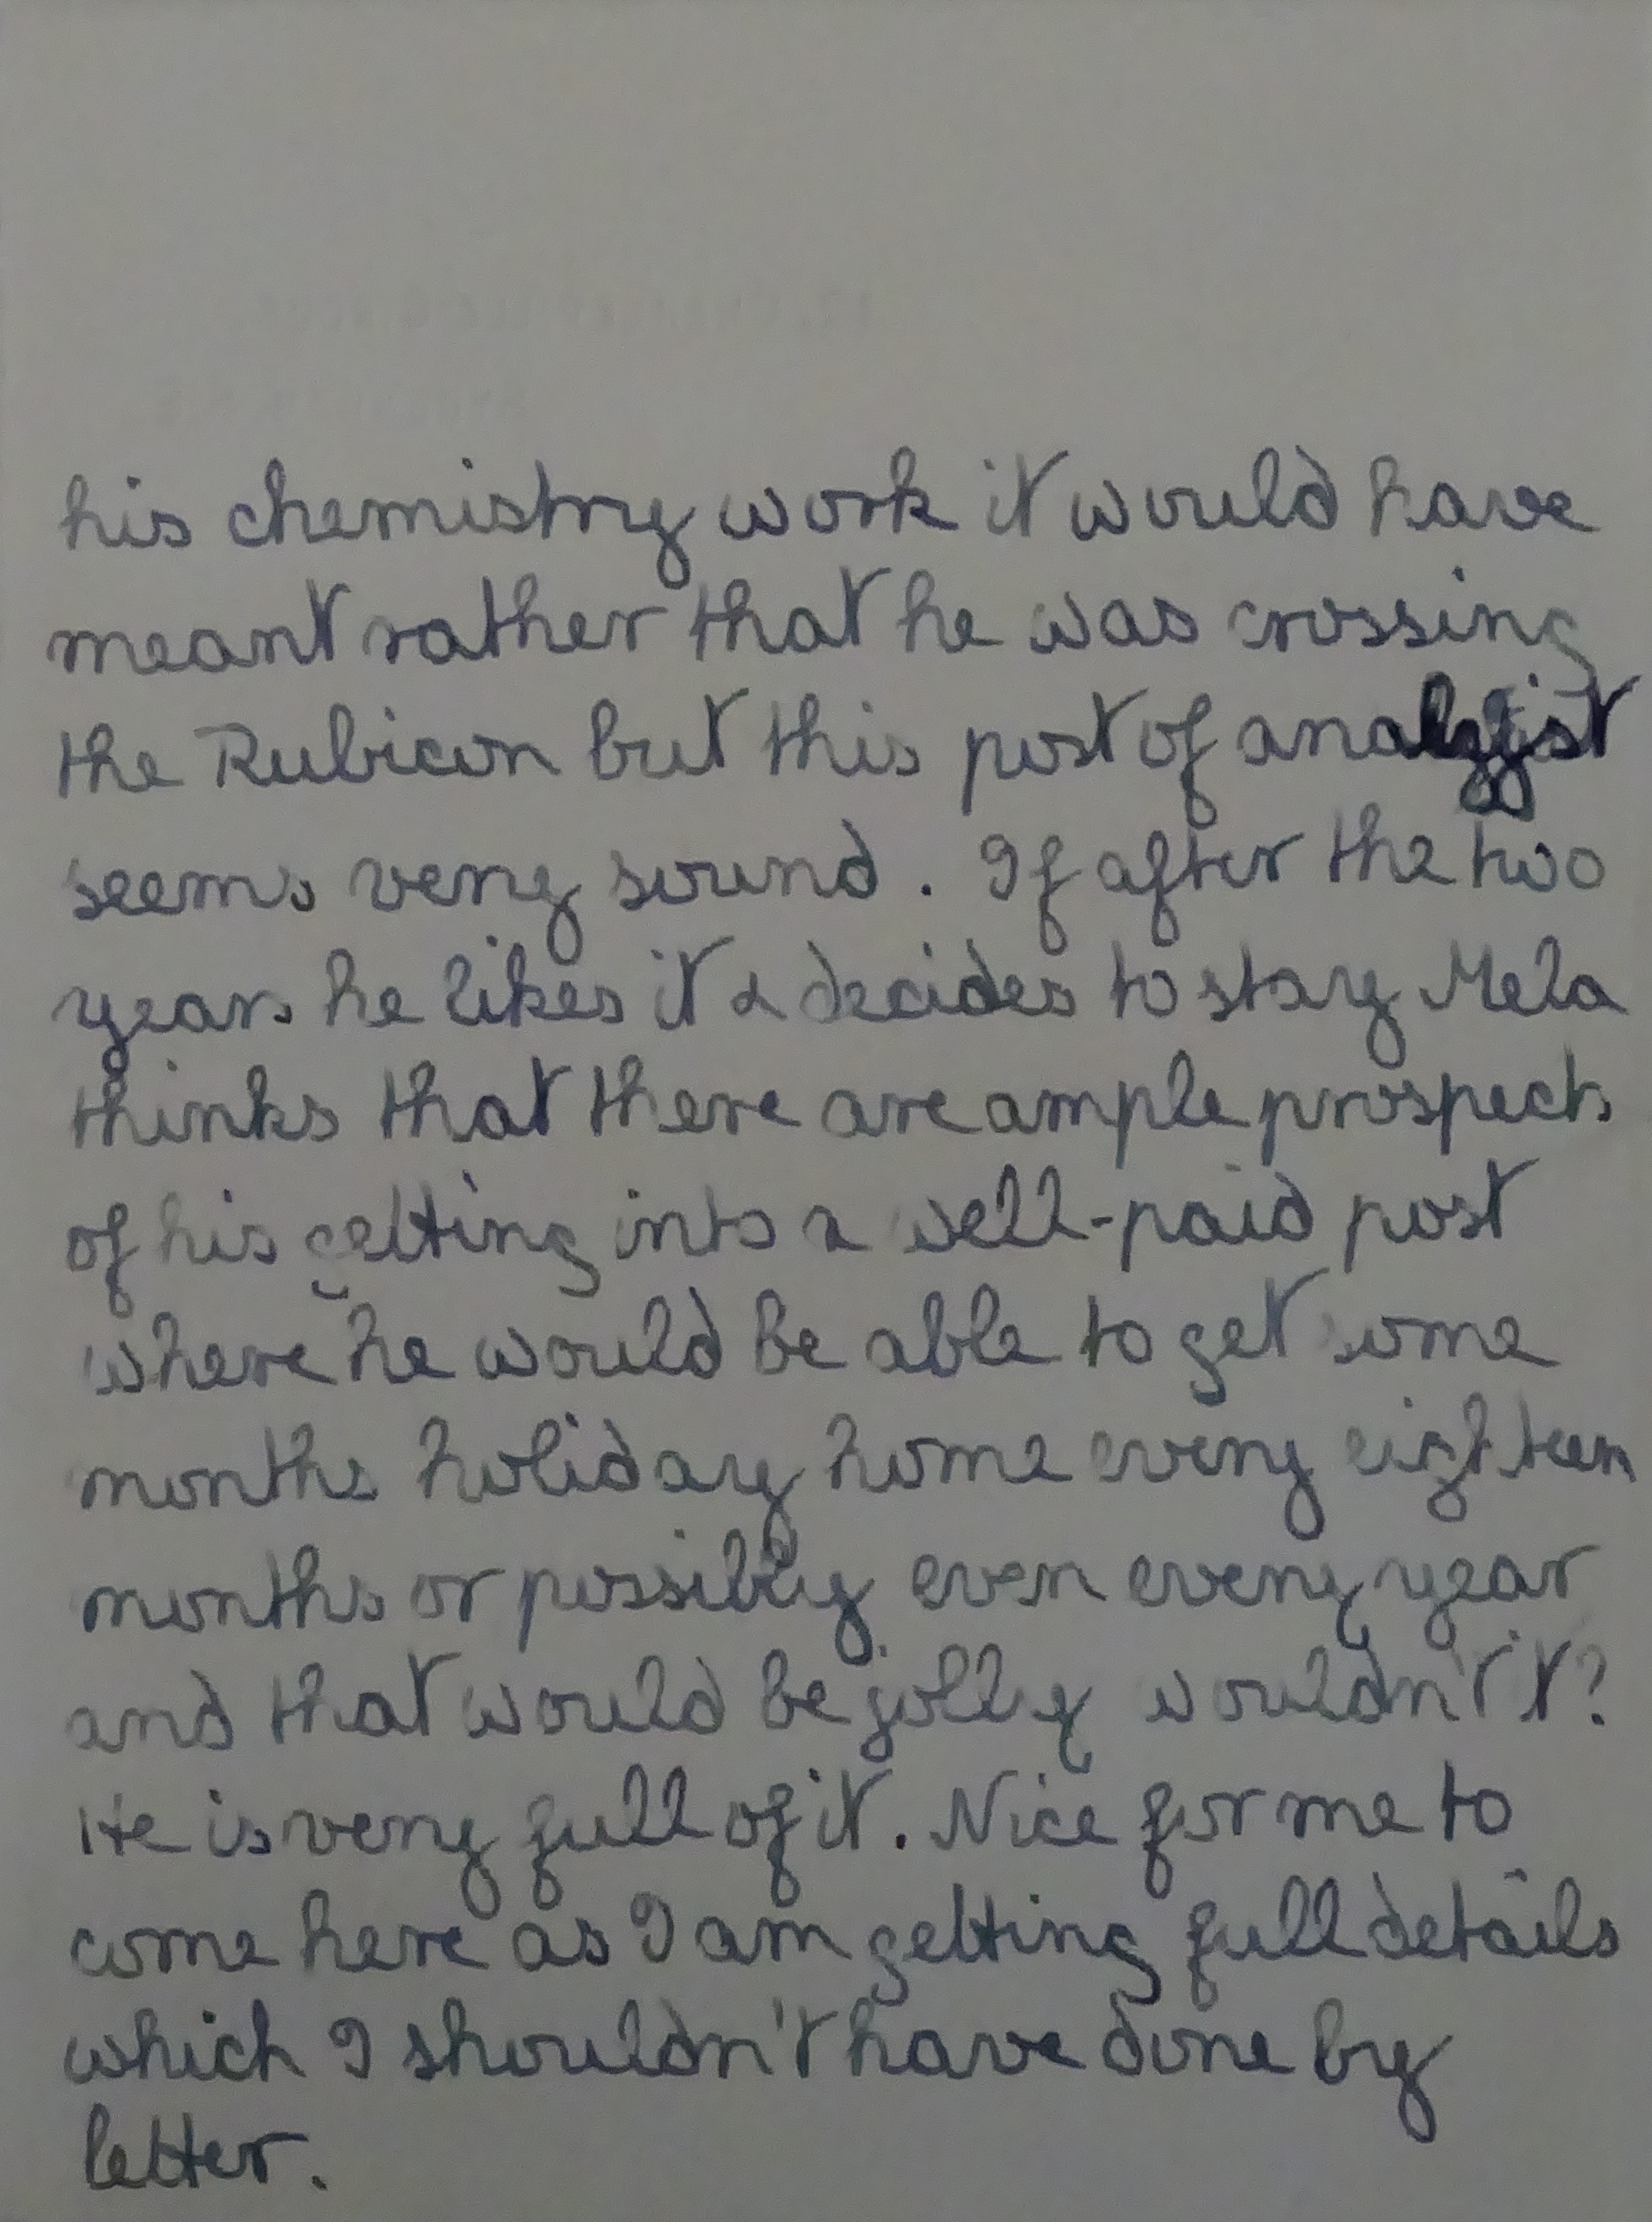 his chemistry work it would have
meant rather that he was crossing
the Rubicon but this post of analyist
seems very sound. If after the two
years he likes it & decides to stay Mela
thinks that there are ample prospects
of his getting into a well-paid post
where he would be able to get some
months holiday home every eighteen
months or possibly even every year
and that would be jolly wouldn't it?
He is very full of it. Nice for me to
come here as I am getting full details
which I shouldn't have done by
letter.